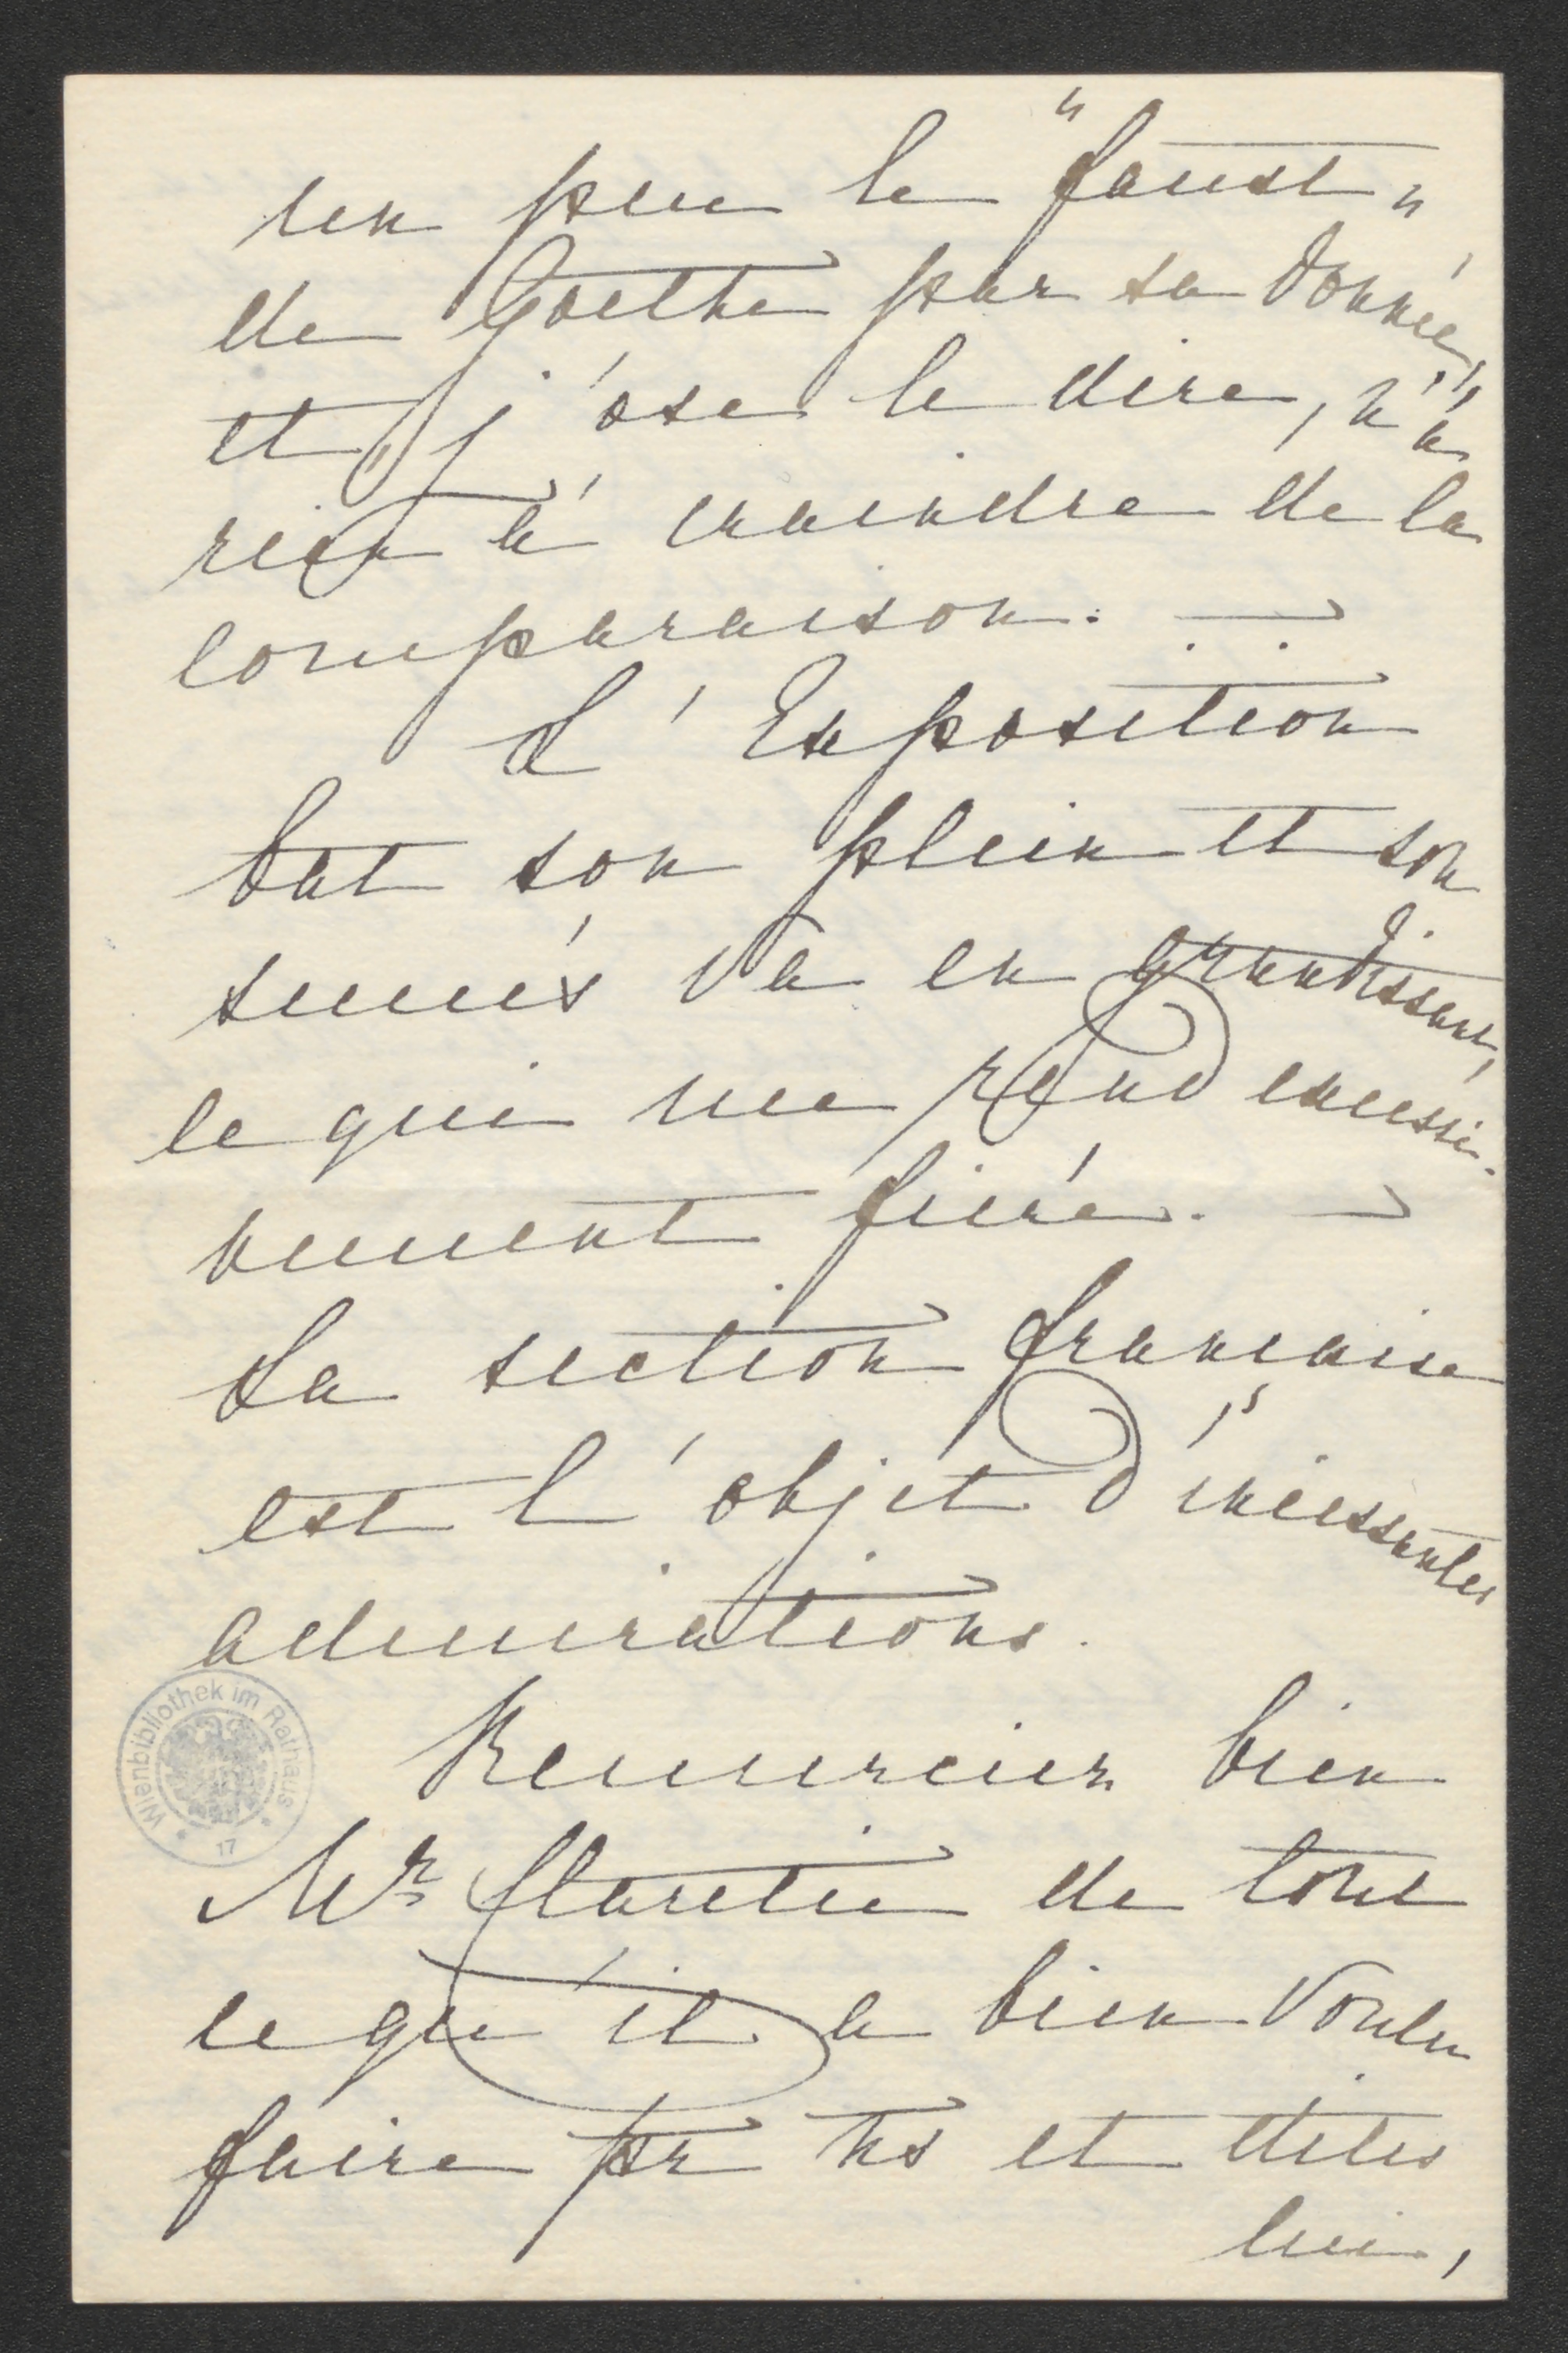 un peu le "Faust"
de Goethe par sa donnée,
et, j'ose le dire, n'a
rien à craindre de la
comparaison. —
L'Exposition
bat son plein et son
succès va en grandissant,
ce qui me rend excessi-
vement fière. —
La section française
est l'objet d'incessantes
admirations.
Remerciez bien
Mr Claretie de tout
ce qu'il a bien voulu
faire pr ns et dites
lui,
Wienbibliothek im Rathaus
17